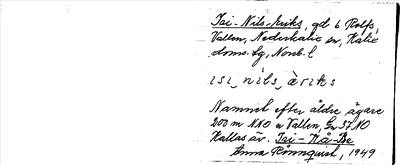 Isi-Nils-Äriks, gd 6 Rolfs,
Vallen, Nederkalix sn, Kalix
doms. fg, Norrb. l
isi, nils, äriks
Namnet efter äldre ägare
200 m NNO er Vallen, Gr 37 NO
Kallas äv.
Anna Rönnqvist, 1949